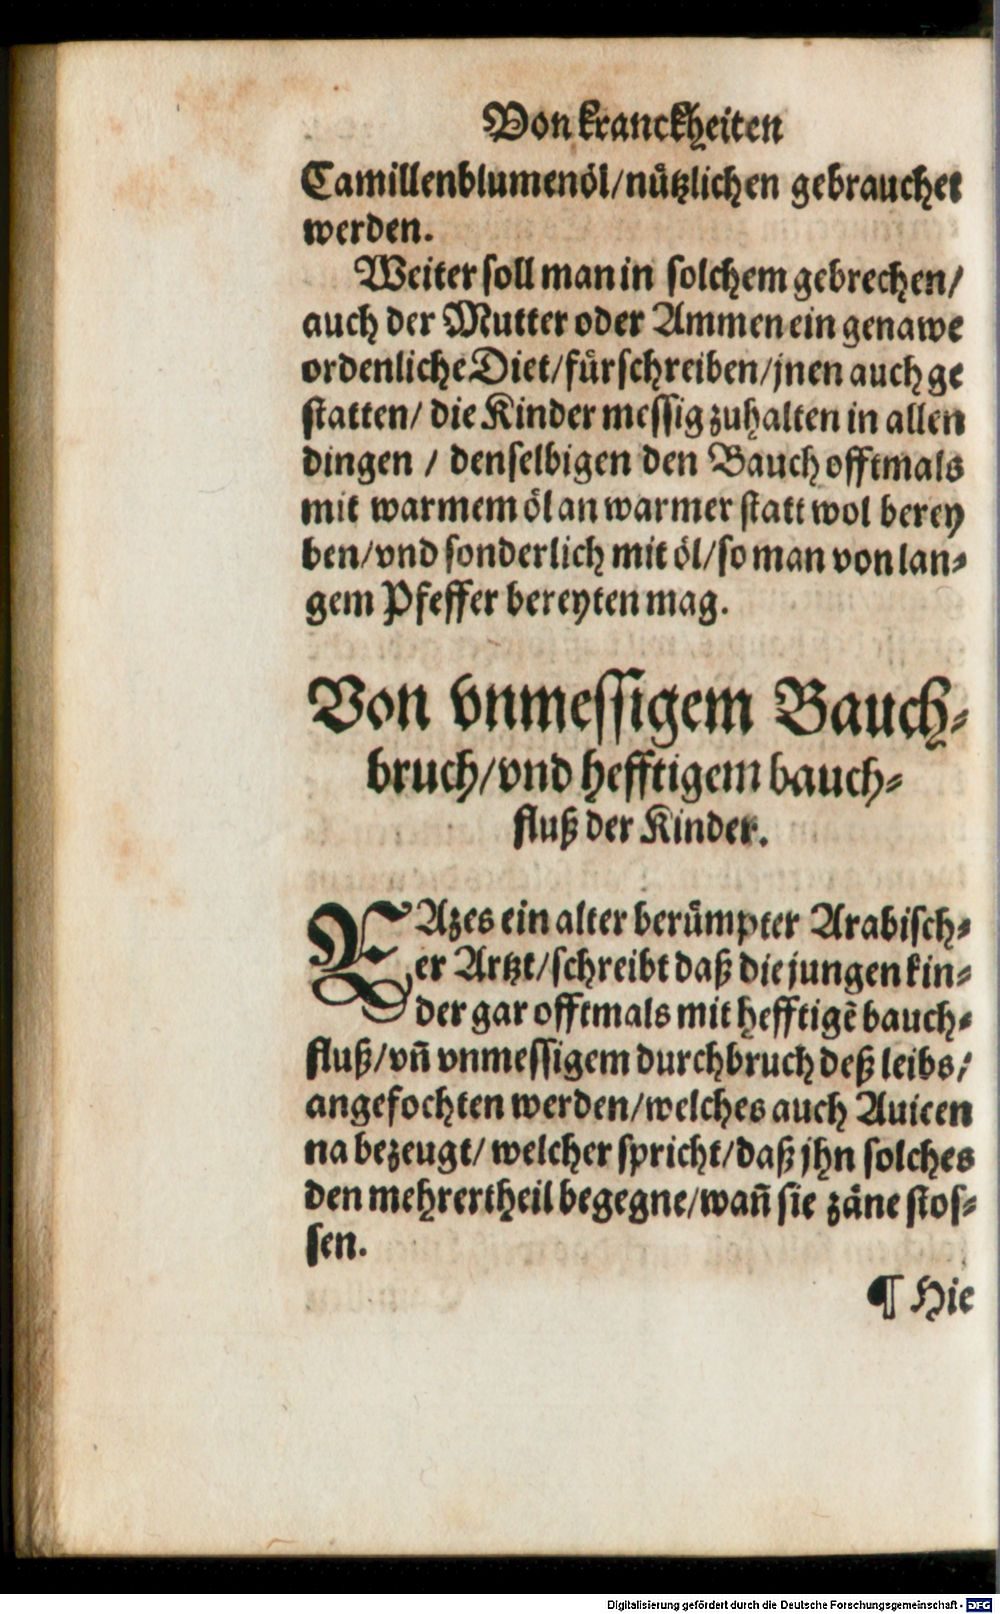 Von kranckheiten
Camillenblumenöl/nützlichen gebrauchet
werden.
Weiter soll man in solchem gebrechen/
auch der Mutter oder Ammen ein genawe
ordenliche Diet/fürschreiben/jnen auch ge
statten/ die Kinder messig zuhalten in allen
dingen / denselbigen den Bauch offtmals
mit warmem öl an warmer statt wol berey
ben/vnd sonderlich mit öl/so man von lan-
gem Pfeffer bereyten mag.
Von vnmessigem Bauch-
bruch/vnd hefftigem bauch-
fluß der Kinder.
RAzes ein alter berümpter Arabisch-
er Artzt/schreibt daß die jungen kin-
der gar offtmals mit hefftigẽ bauch-
fluß/vñ vnmessigem durchbruch deß leibs/
angefochten werden/welches auch Auicen
na bezeugt/ welcher spricht/daß jhn solches
den mehrertheil begegne/wañ sie zäne stos-
sen.
¶ Hie
Digitalisierung gefördert durch die Deutsche Forschungsgemeinschaft - DFG